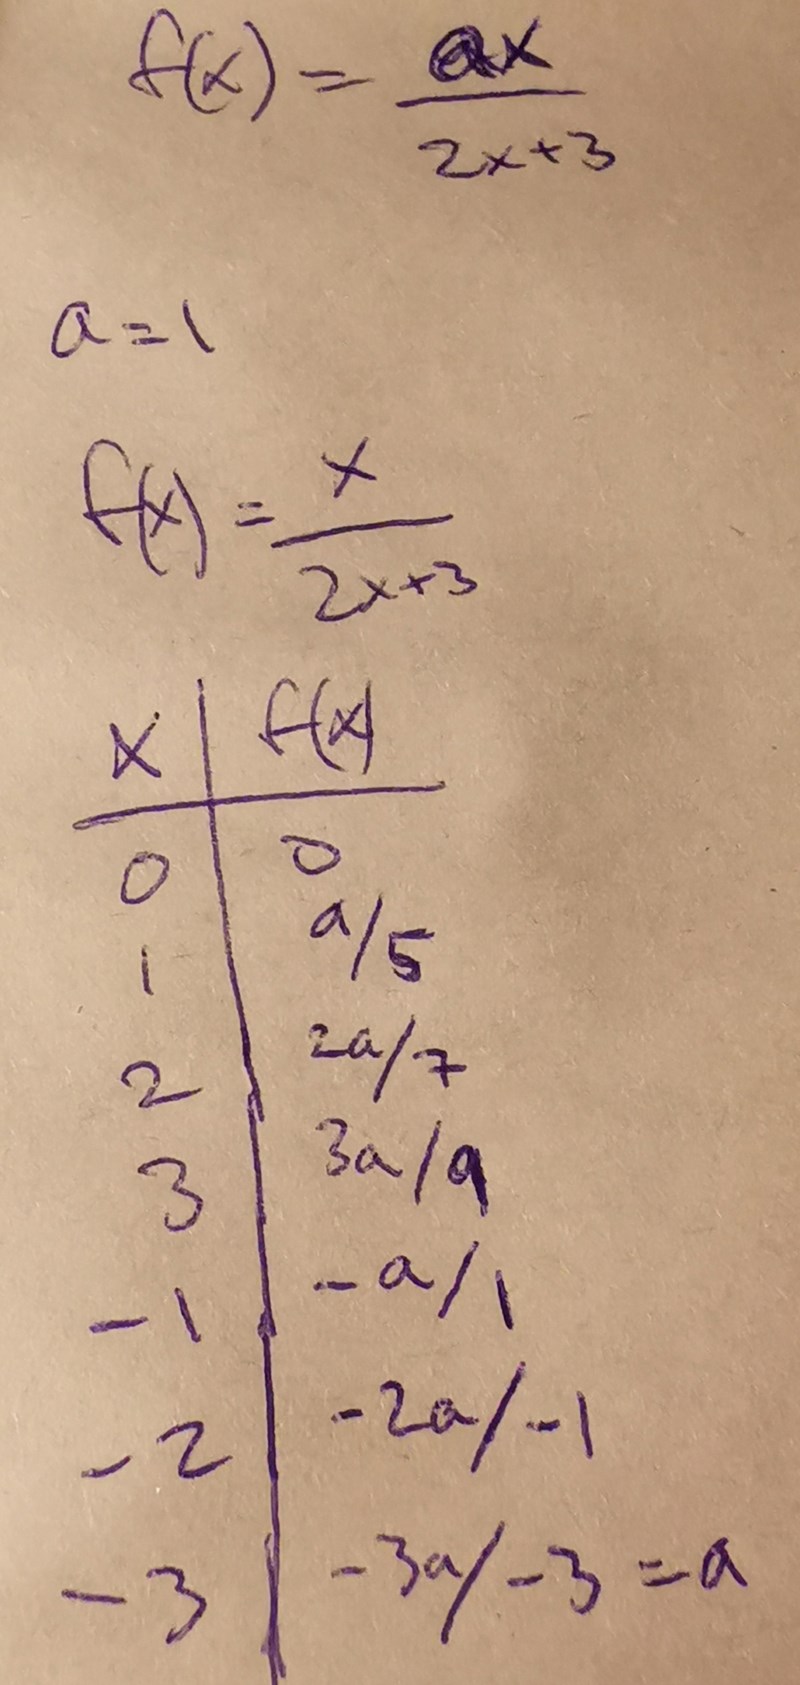 f(x) = ax
2x+3
a=1
f(x) = x
2x+3
x f(x)
0 0
1 a/5
2 2a/7
3 3a/9
-1 -a/1
-2 -2a/-1
-3 -3a/-3 = a